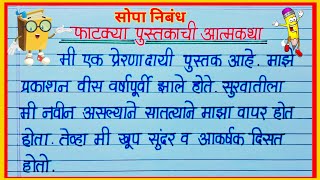 सोपा निबंध
फाटक्या पुस्तकाची आत्मकथा
मी एक प्रेरणादायी पुस्तक आहे. माझे
प्रकाशन वीस वर्षापूर्वी झाले होते. सुरवातीला
मी नवीन असल्याने सातत्याने माझा वापर होत
होता. तेव्हा मी खूप सुंदर व आकर्षक दिसत
होतो.